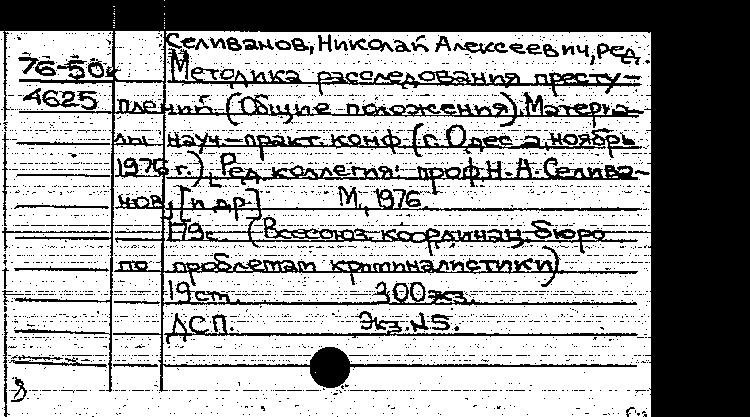 Селиванов, Николай Алексеевич, ред.
76-50к Методика расследования престу-
4625 плений. (Общие положения). Материа-
лы науч.-практ. конф (г. Одесса, ноябрь
1976 г.), Ред. коллегия: проф. Н. А. Селива-
нов, [и др.] М., 1976.
179с. (Всесоюз. координац. бюро
по проблемам криминалистики)
19 см. 300 экз.
ДСП. Экз. №5.